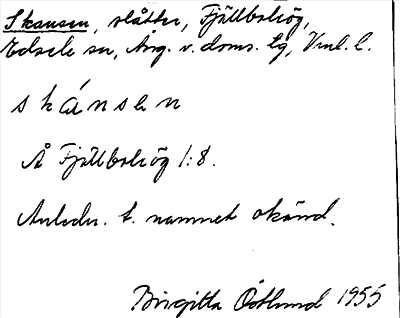 Skansen, slåtter, Fjällbohög,
Edsele sn, Ång. v. doms. lg, Vnl. l.
skánsen
Å Fjällbohög 1:8.
Anledn. t. namnet okänd.
Birgitta Östlund 1955